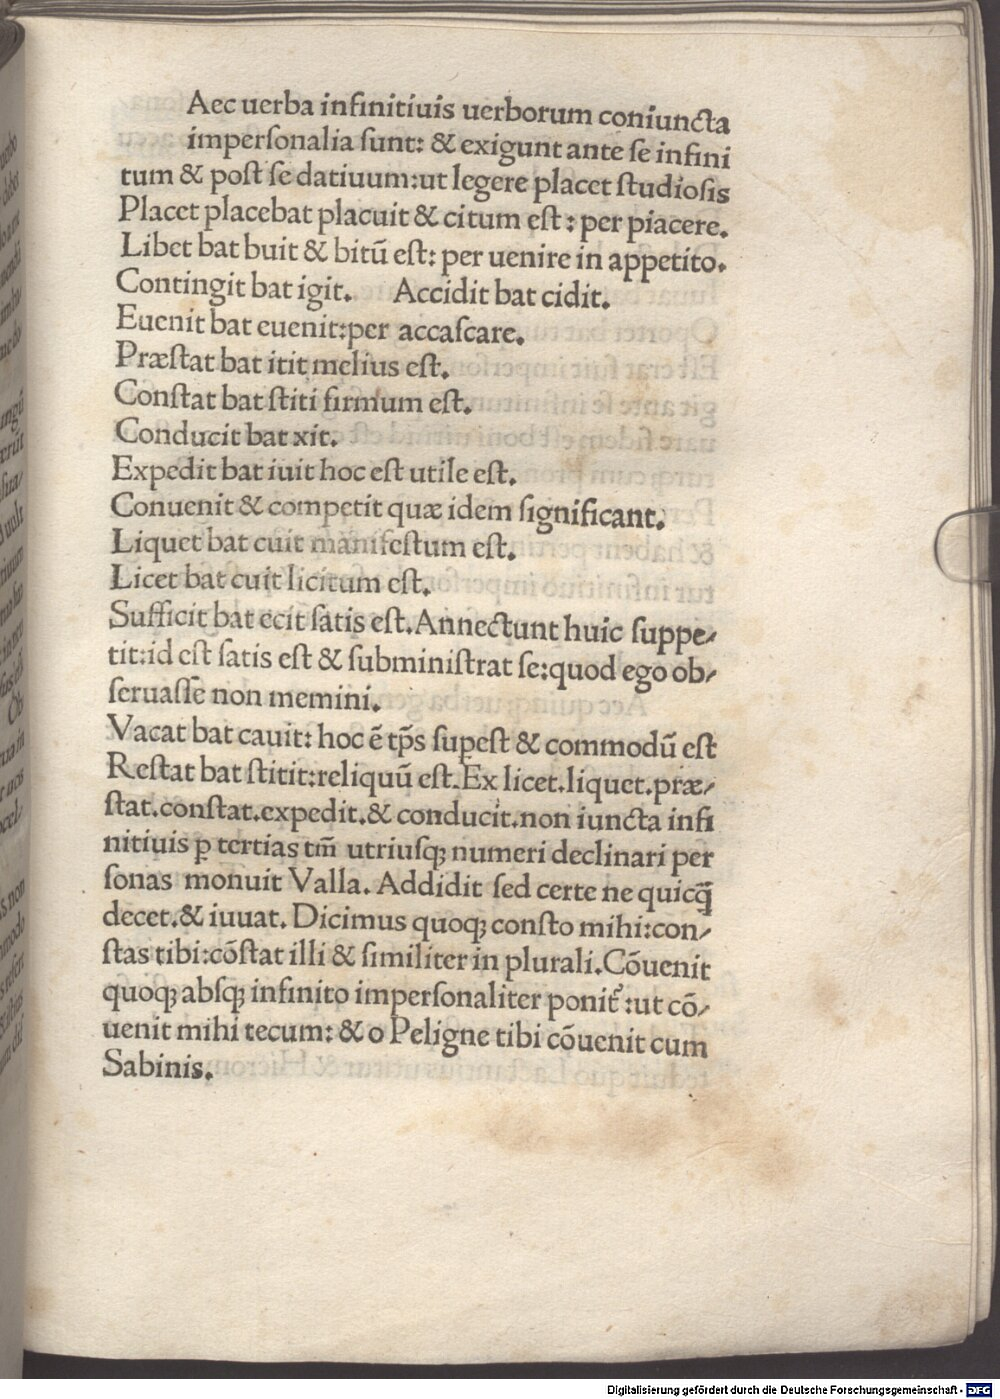 Aec uerba infinitiuis uerborum coniuncta
impersonalia sunt: & exigunt ante se infini
tum & post se datiuum:ut legere placet studiosis
Placet placebat placuit & citum est : per piacere.
Libet bat buit & bitū est: per uenire in appetito.
Contingit bat igit. Accidit bat cidit.
Euenit bat euenit:per accascare.
Præstat bat itit melius est.
Constat bat stiti firmum est.
Conducit bat xit.
Expedit bat iuit hoc est utile est.
Conuenit & competit quæ idem significant.
Liquet bat cuit manifestum est.
Licet bat cuit licitum est.
Sufficit bat ecit satis est.Annectunt huic suppe/
tit:id est satis est & subministrat se:quod ego ob/
seruasse non memini.
Vacat bat cauit: hoc ē tp̄s supest & commodū est
Restat bat stitit:reliquū est.Ex licet.liquet.præ/
stat.constat.expedit.& conducit.non iuncta infi
nitiuis ꝑ tertias tm̄ utriusqꝫ numeri declinari per
sonas monuit Valla. Addidit sed certe ne quicꝗ̄
decet.& iuuat. Dicimus quoqꝫ consto mihi:con/
stas tibi:cōstat illi & similiter in plurali.Cōuenit
quoqꝫ absqꝫ infinito impersonaliter ponit᷑:ut cō/
uenit mihi tecum: & o Peligne tibi cōuenit cum
Sabinis.
Digitalisierung gefördert durch die Deutsche Forschungsgemeinschaft - DFG